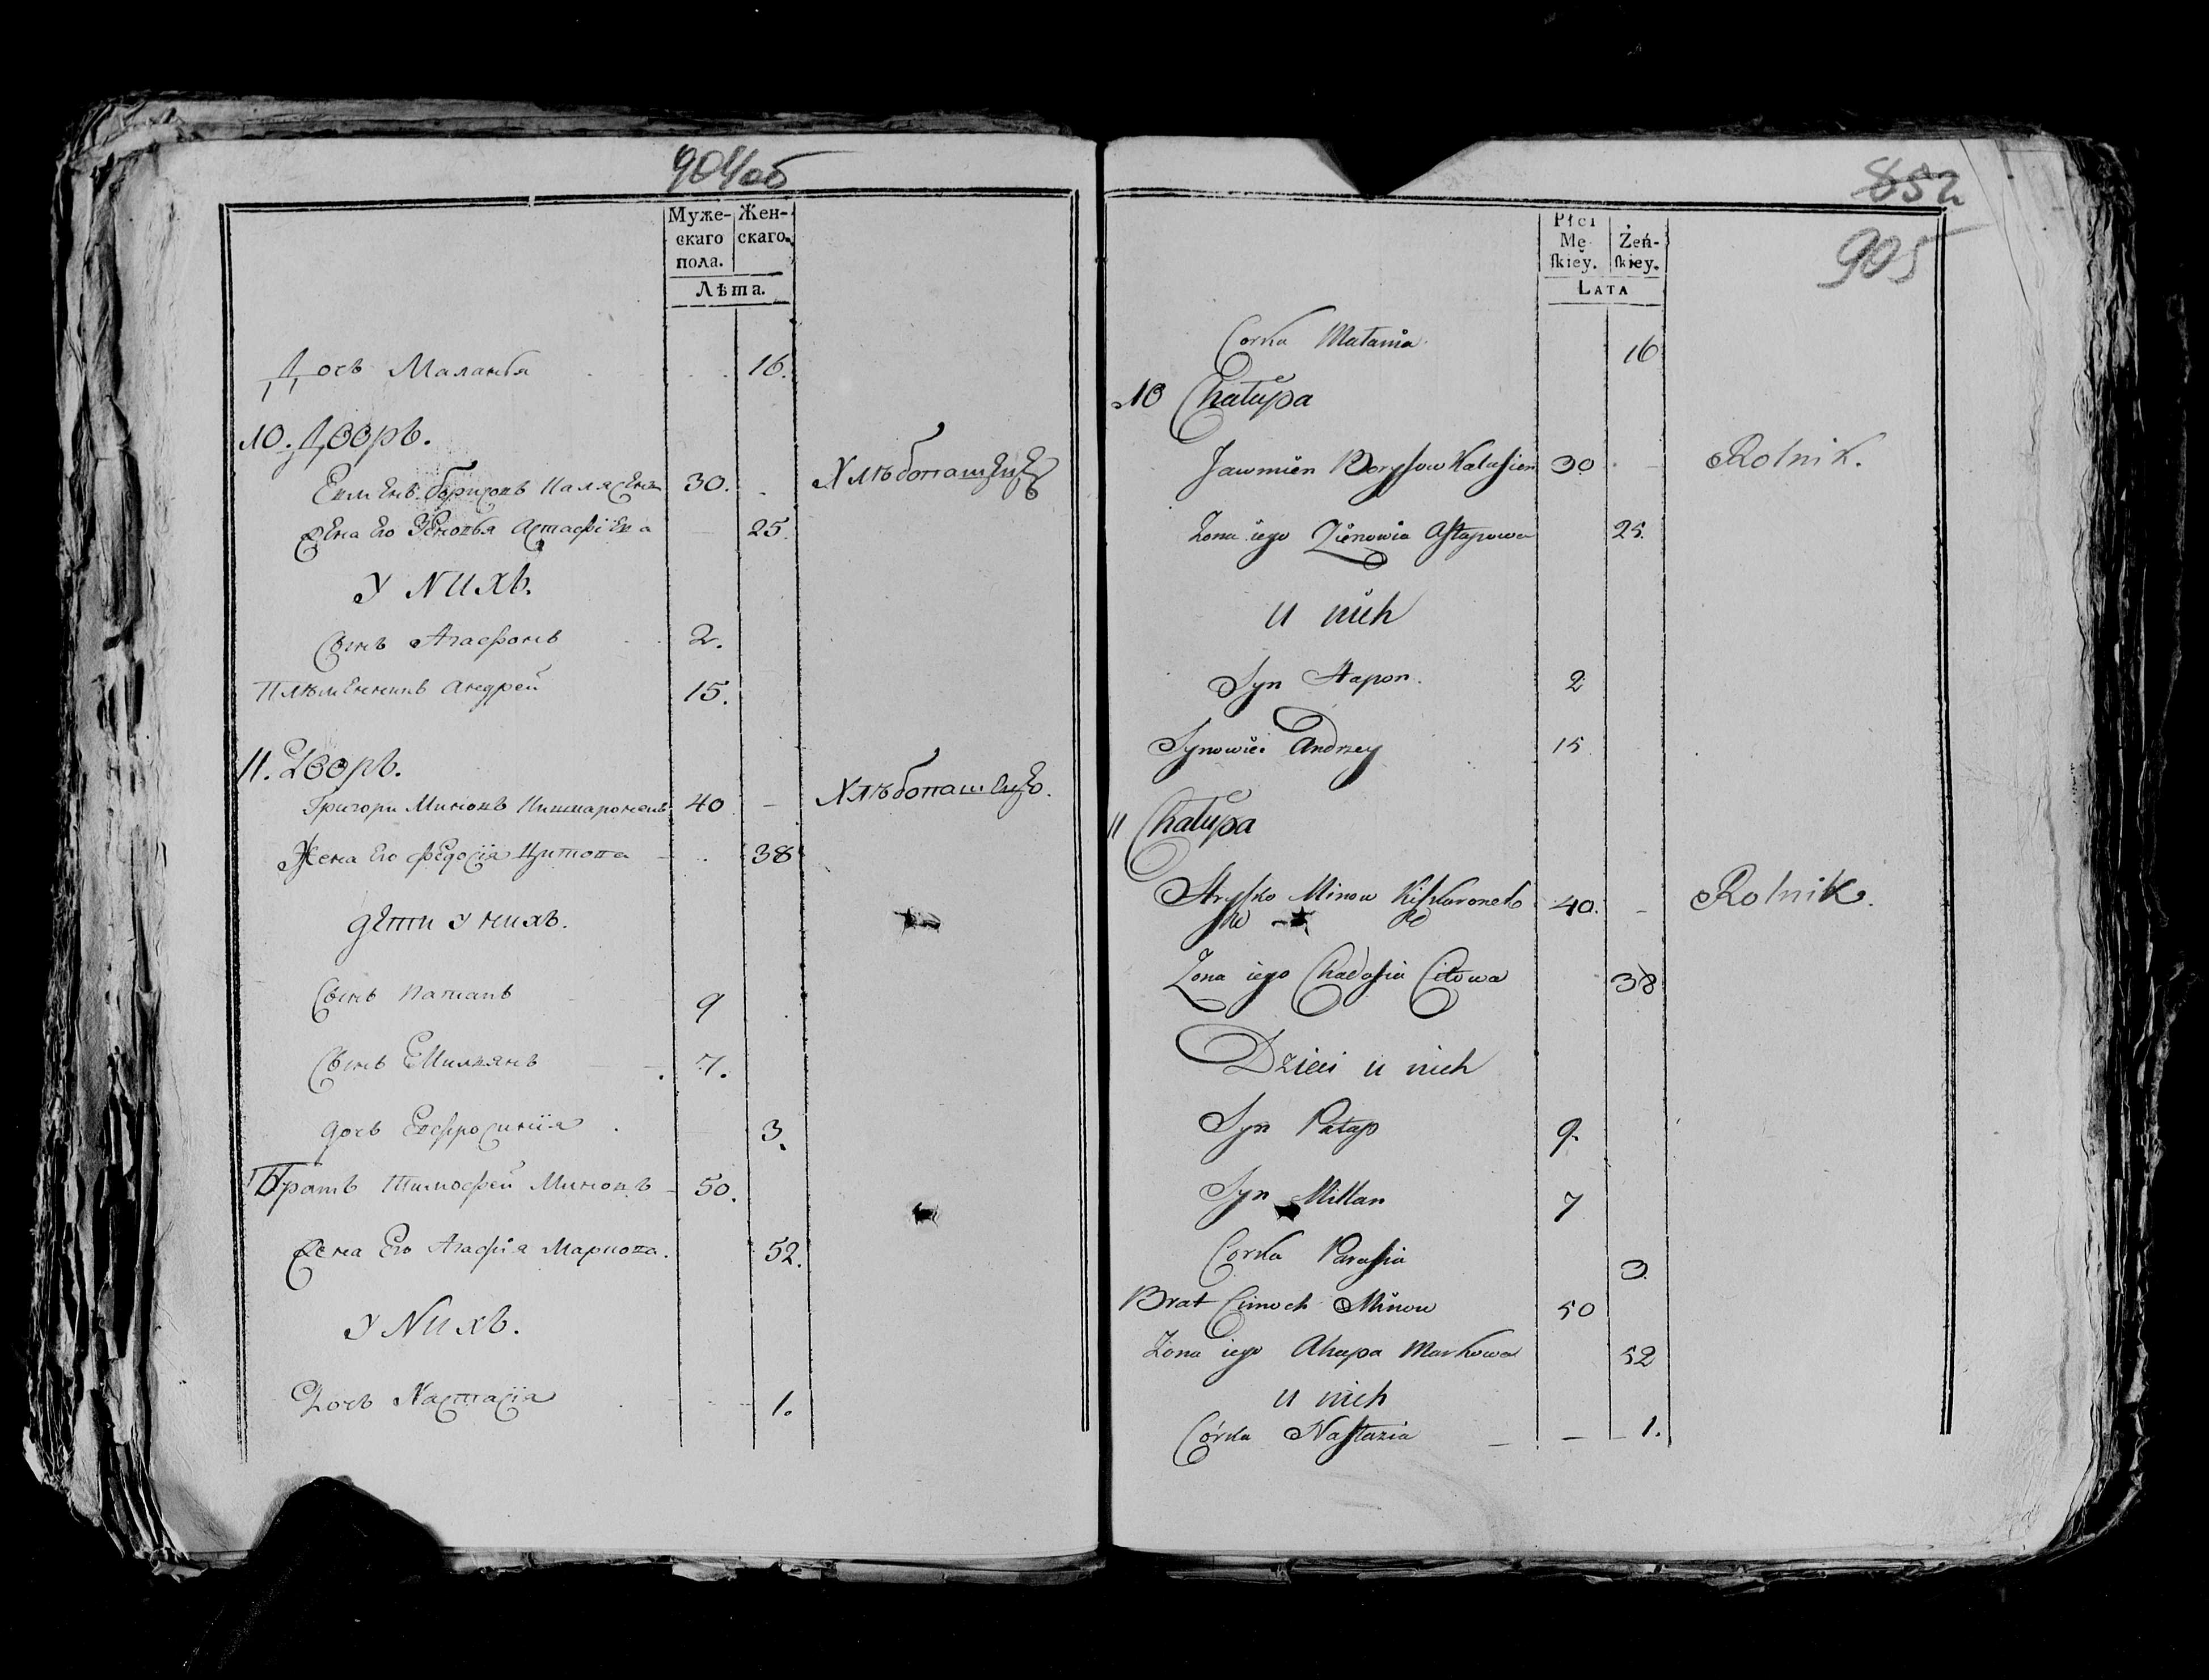 904об
Муже- Жен-
скаго скаго.
пола.
Лѣта.
Дочь Маланья 16.
10. Дворъ.
Борисовъ 30. Хлѣбопашецъ
Жена Его Зеновья Астафіева 25.
У Nихъ.
Сынъ Агафонъ 2.
Племенникъ Андрей 15.
11. Дворъ.
Григори Миновъ 40 Хлѣбопашецъ.
Жена Его Федосія Цитова 38
дети у нихъ.
Сынъ Патапъ 9
Сынъ Емильянъ 7.
дочь Ефросинія 3.
Братъ Тимофей Миновъ 50.
Жена Его Агафія Маркова. 52.
У Nихъ.
Дочь Nастасія 1.
852
905
Płci
Mę- Żeń-
skiey. skiey.
LATA
Corka Małania 16
10 Chałupa
Jawmien Borysow 30 Rolnik.
Zona iego Zienowia Astapowa 25.
u nich
Syn Hapon. 2
Synowiec Andrzey 15
11 Chałupa
Minow 40. Rolnik.
Zona iego Chadosia Citowa 38
Dzieci u nich
Syn Patap 9.
Syn Millan 7
Corka Parasia 3
Brat Cimoch Minow 50
Zona iego Ahapa Markowa 52
u nich
Córka Nastazia 1.